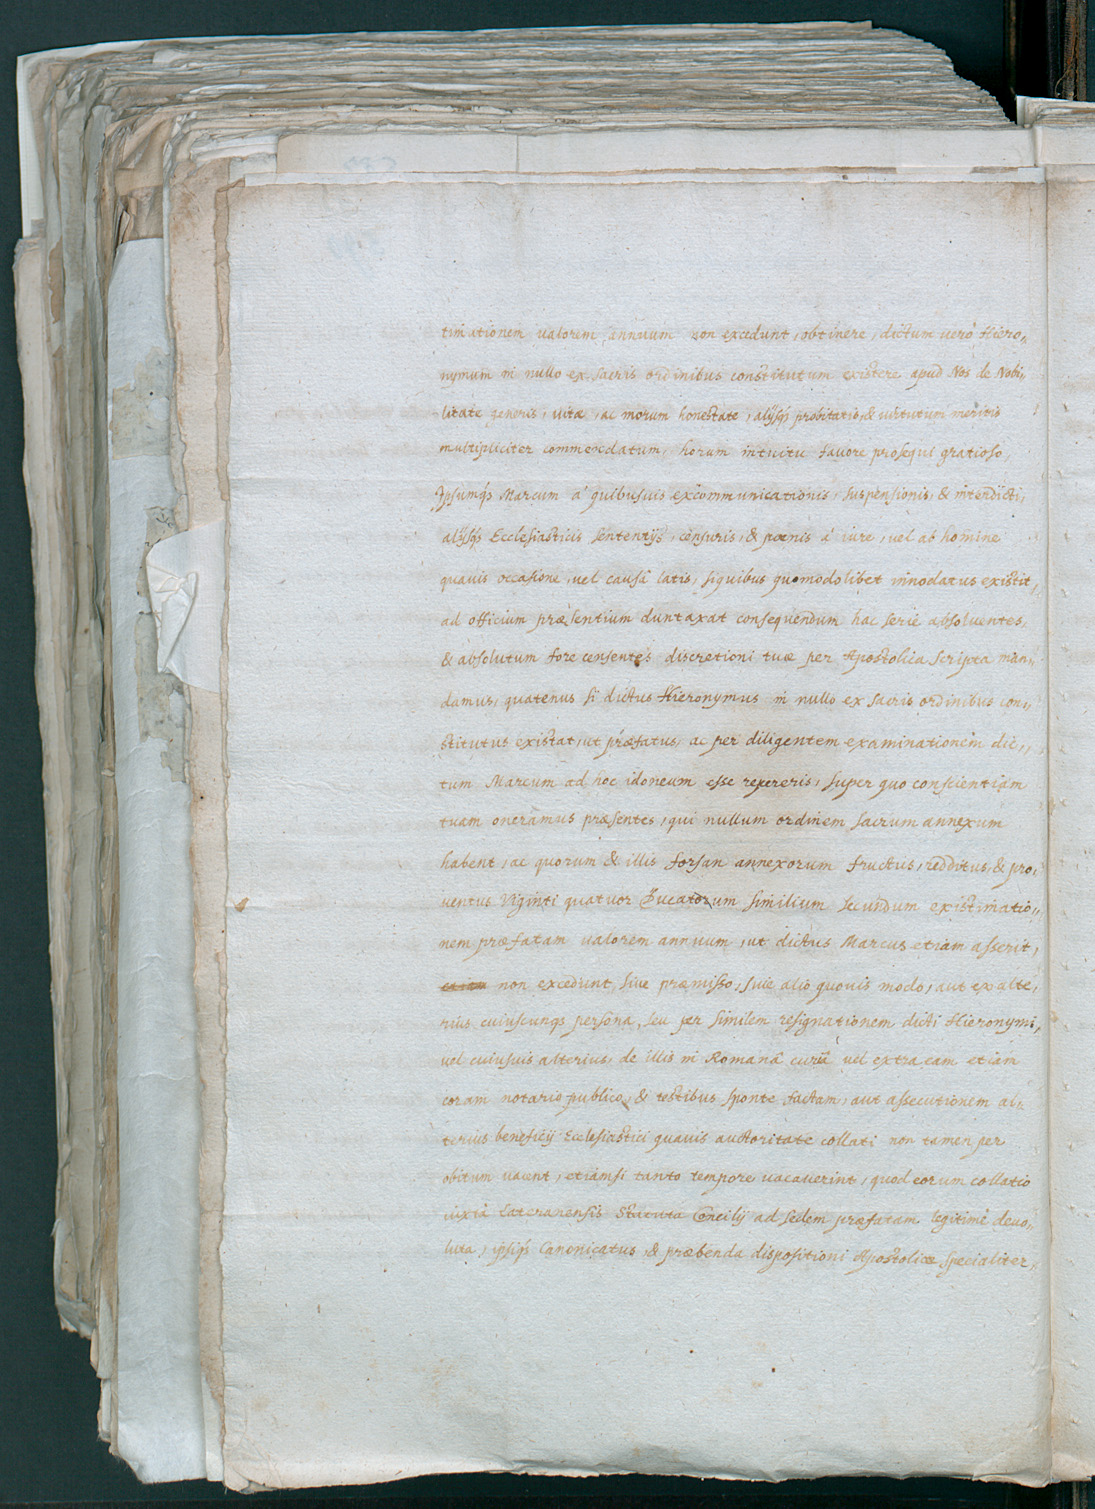 timationem valorem annuum non excedunt, obtinere, dictum verò Hiero„
nymum in nullo ex sacris ordinibus constitutum existere apud Nos de Nobi„
litate generis, uitæ, ac morum honestate, alijsq́s probitatis, & uirtutum meritis
multipliciter commendatum, horum intuitu fauore prosequi gratioso,
Ipsumq́s Marcum à quibusuis excommunicationis, suspensionis, & interdicti,
alijsq́s Ecclesiasticis sententijs, censuris, & pœnis à iure, uel ab homine
quauis occasione, uel causâ latis, siquibus quomodolibet innodatus existit,
ad officium præsentium duntaxat consequendum hac serie absoluentes,
& absolutum fore censentes discretioni tuæ per Apostolica scripta man„
damus, quatenus si dictus Hieronymus in nullo ex sacris ordinibus con„
stitutus existat, ut præfatus, ac per diligentem examinationem dic„
tum Marcum ad hoc idoneum esse repereris, super quo conscientiam
tuam oneramus præsentes, qui nullum ordinem sacrum annexum
habent, ac quorum & illis forsan annexorum fructus, redditus, & pro„
uentus Viginti quatuor Ducatorum similium secundum existimatio„
nem præfatam ualorem annuum, ut dictus Marcus etiam asserit,
non excedunt, siue præmisso, siue alio quouis modo, aut ex alte„
rius cuiuscunqs persona, seu per similem resignationem dicti Hieronymi,
uel cuiusuis alterius, de illis in Romanâ curiâ uel extra eam etiam
coram notario publico, & testibus sponte factam, aut assecutionem al„
terius beneficij Ecclesiastici quauis auctoritate collati non tamen per
obitum uacent, etiamsi tanto tempore uacauerint, quod eorum collatio
iuxta Lateranensis Statuta Concilij ad sedem præfatam legitimè deuo„
luta, ipsiq́s Canonicatus, & præbenda dispositioni Apostolicæ specialiter,